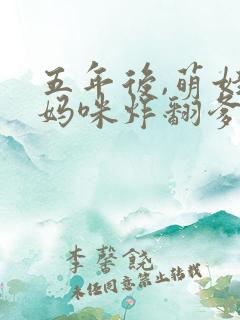 五年後,萌娃
妈咪炸翻爹
李馨饶
未任同意禁止转载